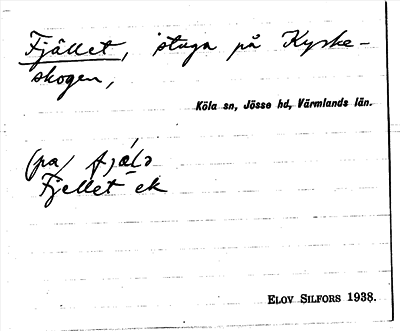 Fjället, stuga på Kyrke-
skogen,
Köla sn, Jösse hd, Värmlands län.
(på)
Fjellet ek
ELOV SILFORS 1938.